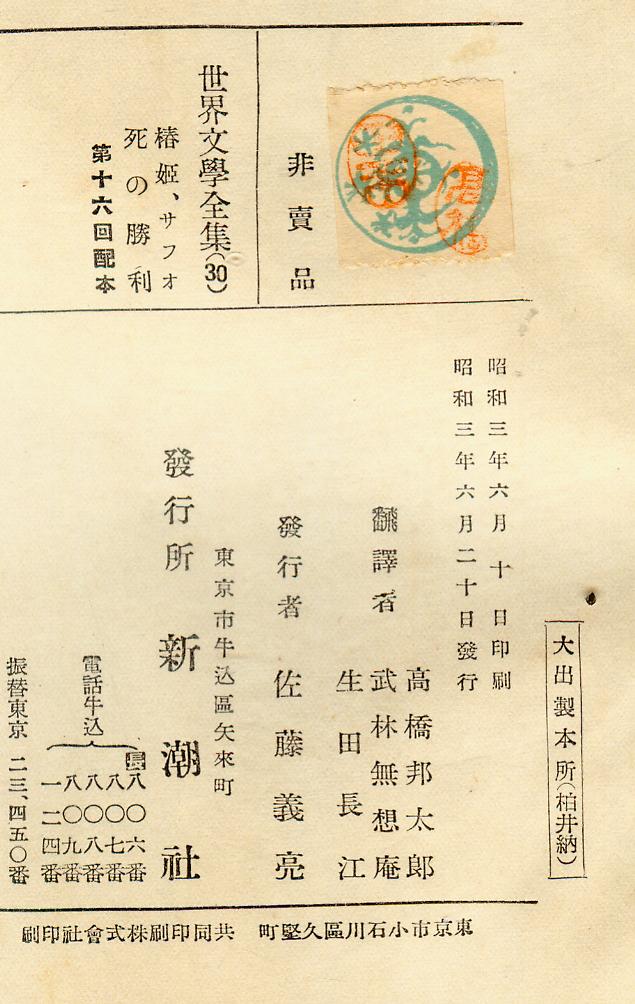 非賣品
世界文學全集(30)
椿姬、サフォ
死の勝利
第十六回配本
大出製本所(柏井納)
昭和三年六月十日印刷
昭和三年六月二十日發行
翻譯者
高橋邦太郎
武林無想庵
生田長江
發行者 佐藤義亮
東京市牛込區矢來町
發行所 新潮社
電話牛込
長八〇六番
八〇七番
八〇八番
八〇九番
一二四番
振替東京 二三、四五〇番
東京市小石川區久堅町 共同印刷株式會社印刷